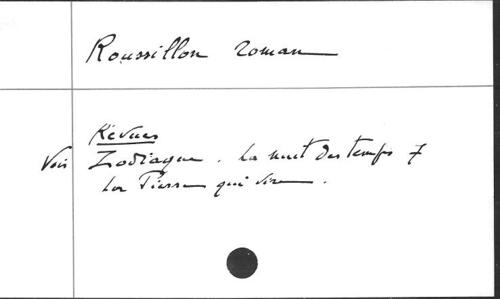 Roussillon roman
Révues
Voir Zodiaque. La nuit des temps 7
La Pierre qui vire.